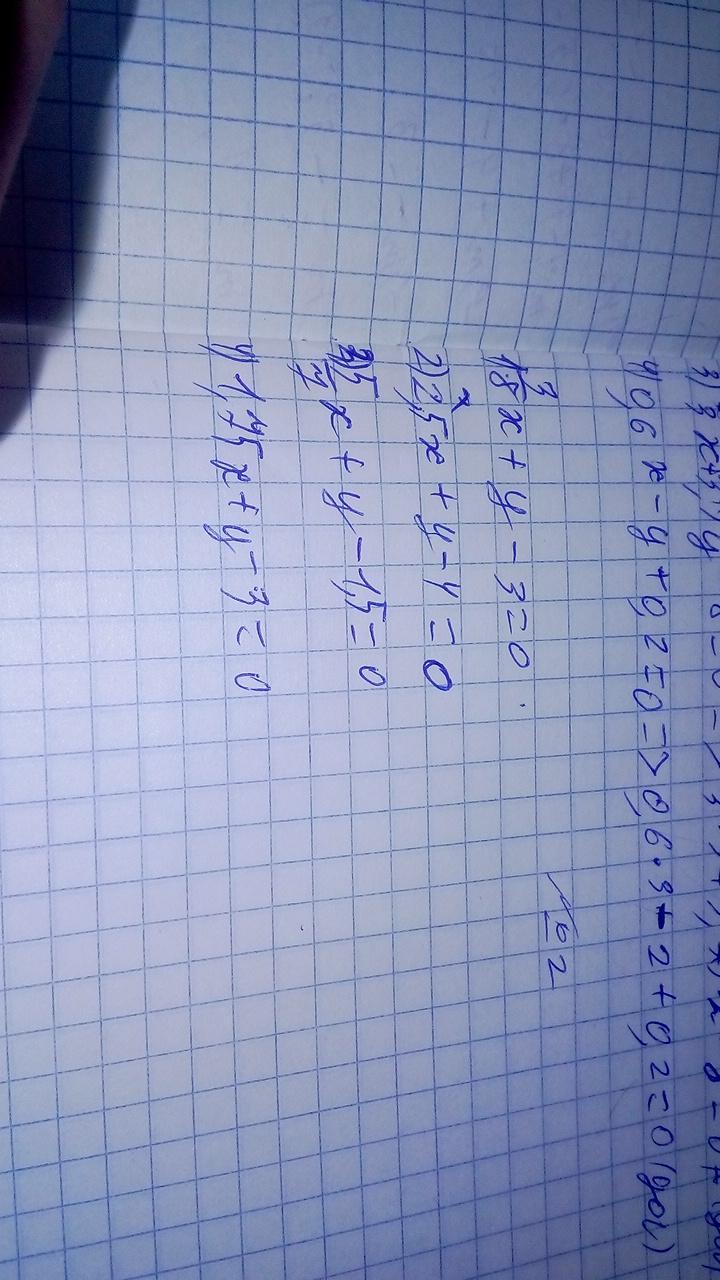 4) 0,6 x - y + 0,2 = 0 => 0,6 · 3 - 2 + 0,2 = 0 (уоч)
№ 2
1) 3/8 x + y - 3 = 0
2) 2,5x + y - 4 = 0
3) 5/7 x + y - 1,5 = 0
4) 1,75x + y - 3 = 0